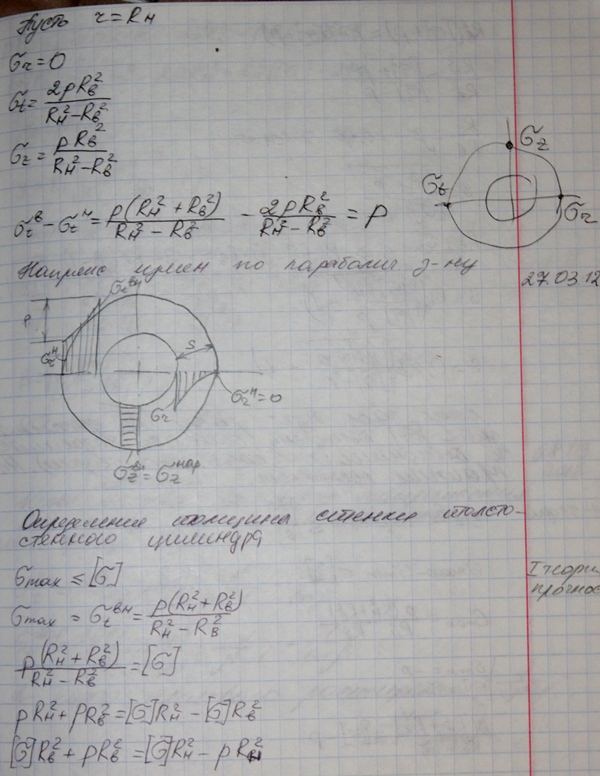 Пусть r = Rн
σr = 0
σt = 2pRв² / Rн² – Rв²
σz = pRв² / Rн² – Rв²
σz
σt
σr
σtᴮ – σtᴴ = p(Rн² + Rв²) / Rн² – Rв² – 2pRв² / Rн² – Rв² = p
Напряж измен по параболич з-ну
27.03.12
σtᵛⁿ
p
σtᴴ
S
σr
σrᴴ = 0
σzᵛⁿ = σzнар
Определение толщина стенки толсто-
стенного цилиндра
σmax ≤ [σ]
I теори
прочнос
σmax = σtᵛⁿ = p(Rн² + Rв²) / Rн² – Rв²
p(Rн² + Rв²) / Rн² – Rв² = [σ]
pRн² + pRв² = [σ]Rн² – [σ]Rв²
[σ]Rв² + pRв² = [σ]Rн² – pRн²